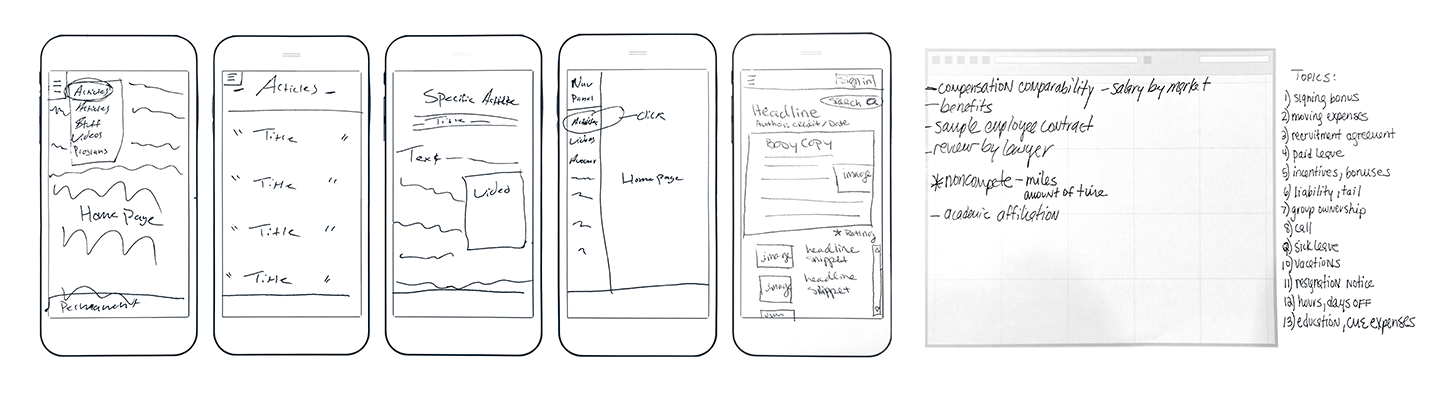 Articles
Articles
Stuff
Videos
Programs
Home Page
Permanent
Articles
" Title "
" Title "
" Title "
" Title "
Specific Article
Title
Text
Video
Nav
Panel
Articles
Videos
Click
Home Page
Sign in
Search
Headline
Author, credit/Date
BODY COPY
image
* Rating
image
headline
snippet
image
headline
snippet
- compensation comparability - salary by market
- benefits
- sample employee contract
- review by lawyer
* noncompete - miles
amount of time
- academic affiliation
Topics:
1) signing bonus
2) moving expenses
3) recruitment agreement
4) paid leave
5) incentives, bonuses
6) liability, tail
7) group ownership
8) call
9) sick leave
10) vacations
11) resignation notice
12) hours, days off
13) education, CME expenses